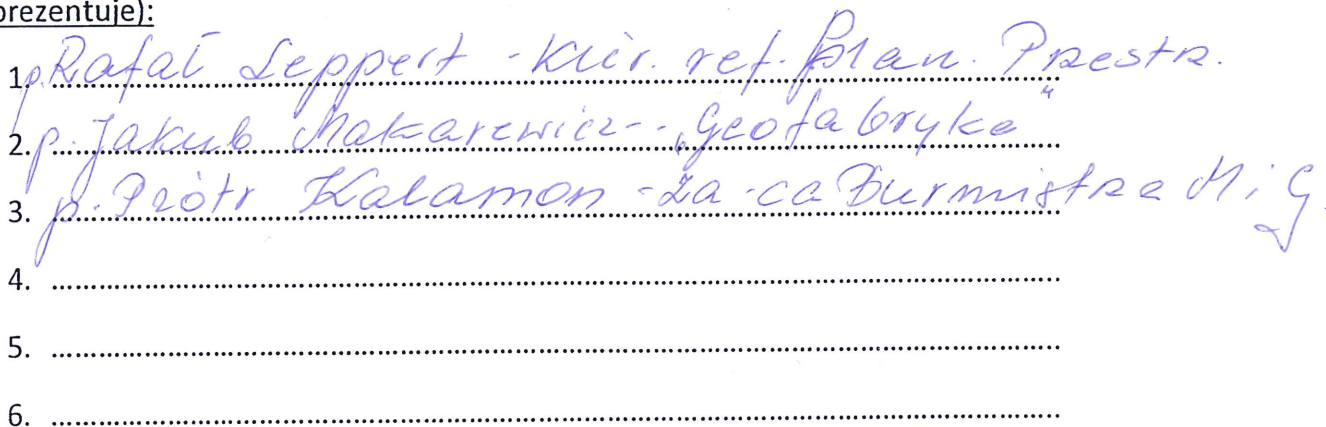 prezentuje):
1. p. Rafał Leppert - Kier. ref. plan. Przestrz.
2. p. Jakub Makarewicz - "Geofabryka"
3. p. Piotr Kalamon - Za-ca Burmistrza M i G.
4.
5.
6.